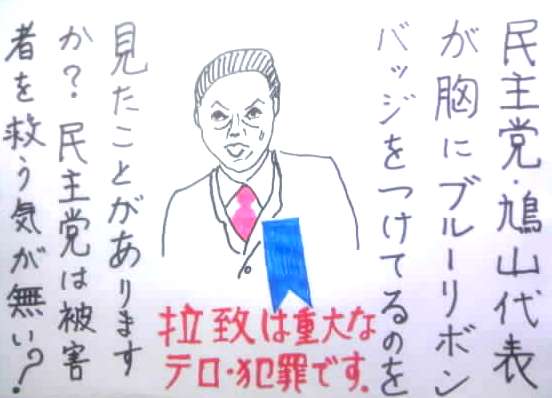 民主党・鳩山代表
が胸にブルーリボン
バッジをつけてるのを
見たことがあります
か？民主党は被害
者を救う気が無い？
拉致は重大な
テロ・犯罪です.